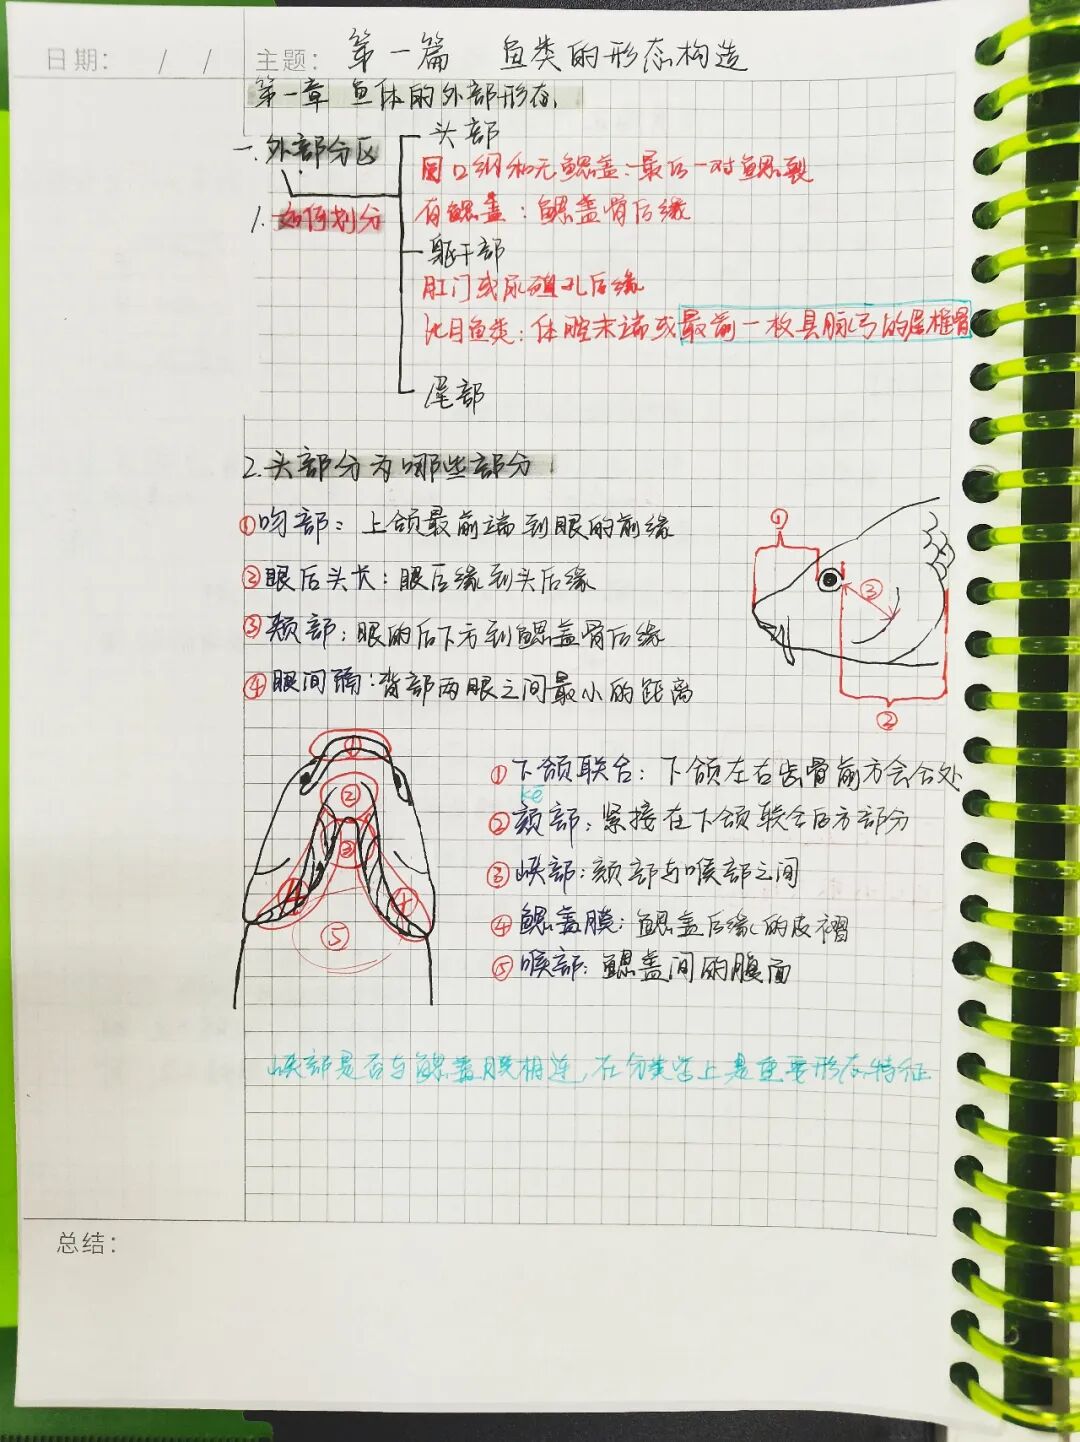 日期： / / 主题：第一篇 鱼类的形态构造
第一章 鱼体的外部形态
一.外部分区
头部
圆口纲和无鳃盖：最后一对鳃裂
1.如何划分
有鳃盖：鳃盖骨后缘
躯干部
肛门或尿殖孔后缘
比目鱼类：体腔末端或最前一枚具脉弓的尾椎骨
尾部
2.头部分为哪些部分
①吻部：上颌最前端到眼的前缘
②眼后头长：眼后缘到头后缘
③颊部：眼的后下方到鳃盖骨后缘
④眼间隔：背部两眼之间最小的距离
①
③
②
①
②
③
4
4
⑤
①下颌联合：下颌左右齿骨前方会合处
kē
②颏部：紧接在下颌联合后方部分
③峡部：颏部与喉部之间
④鳃盖膜：鳃盖后缘的皮褶
⑤喉部：鳃盖间的腹面
峡部是否与鳃盖膜相连，在分类学上是重要形态特征
总结：